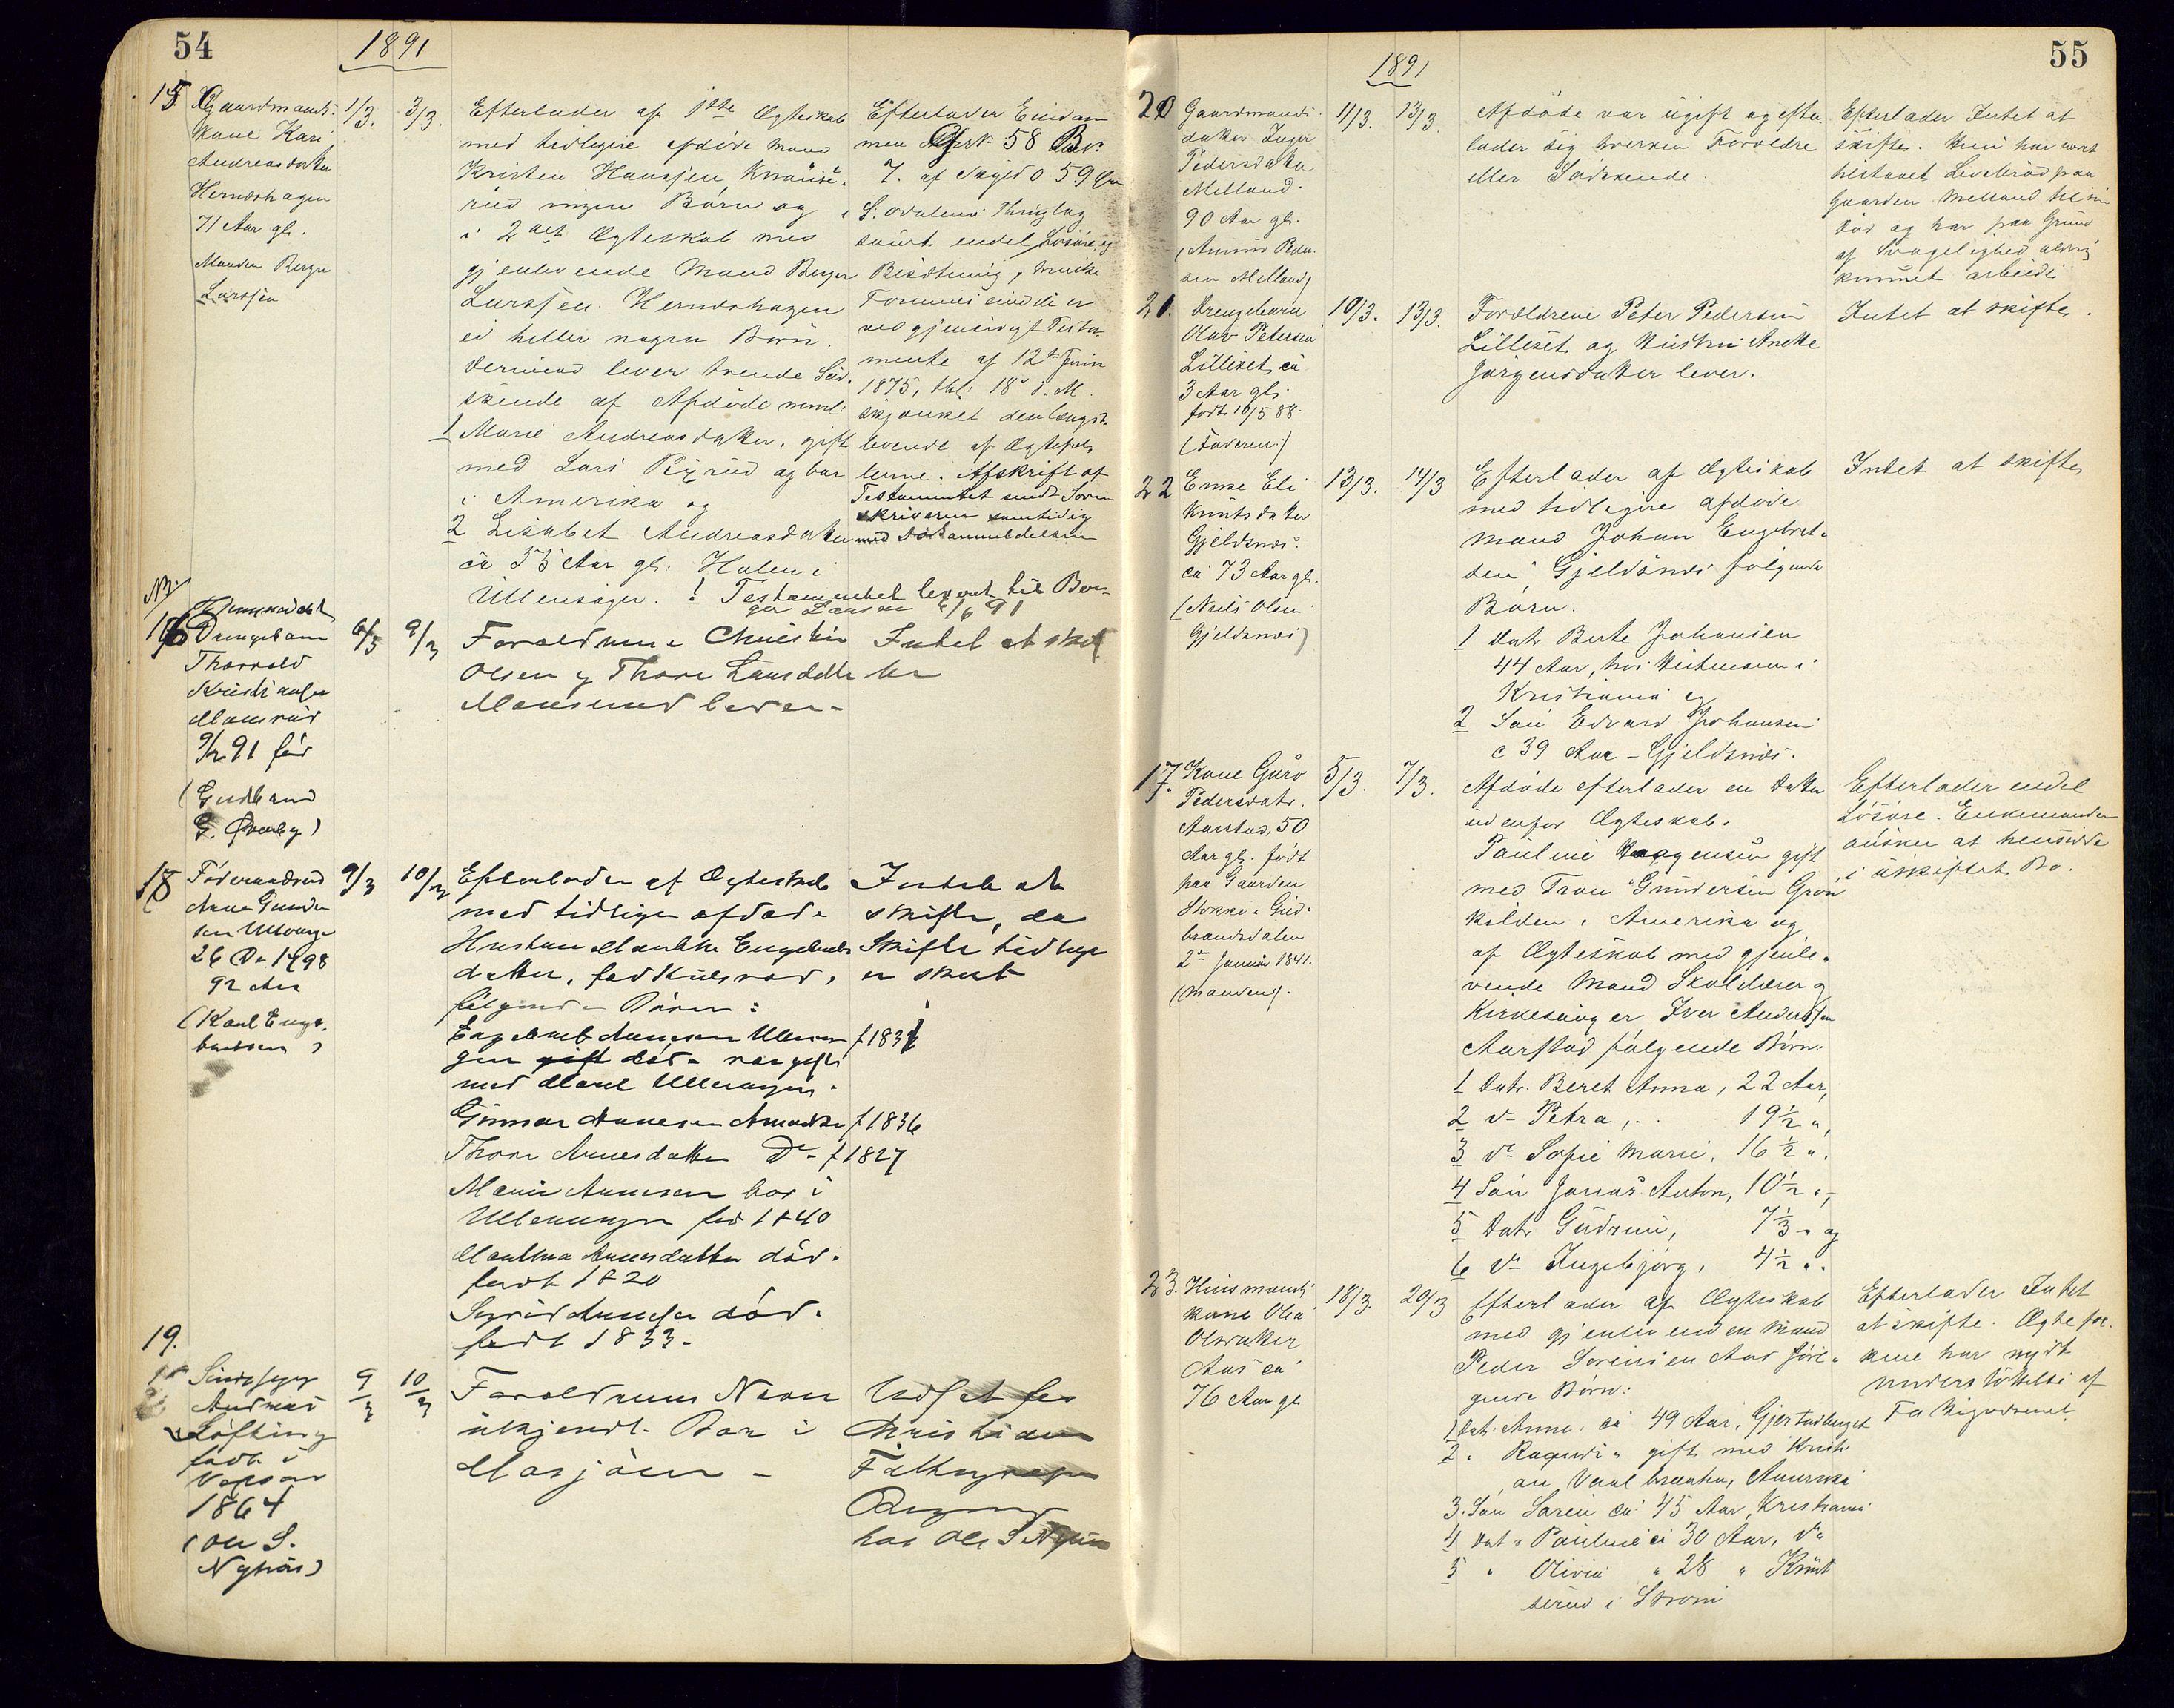 54
1891
15. Gaardmands-
kone Kari
Andreasdatter
Herndshagen
71 Aar gl.
Manden Berger
Larssen
1/3.
3/3.
Efterlader af 1ste Ægteskab
med tidligere afdøde Mand
Kristen Hanssen
ingen Børn og
i 2det Ægteskab med
gjenlevende Mand Berger
Larssen Herndshagen
ei heller nogen Børn.
Derimod lever trende Sød-
skende af Afdøde neml:
1 Marie Andreasdatter, gift
med Lars og bor
i Amerika og
2 Lisabet Andreasdatter
ca 55 Aar gl. Holen i
Ullensager. ! Testamentet leveret til Ber-
ger Larssen 6/6 91
Efterlader Eiendom
men Gsk. 58 Br.
7. af Skyld 0 59 Øre
S. Odalens Thinglag
samt endel Løsøre og
Besætning, hvilke
er
ved gjensidigt Testa-
mente af 12te Juni
1875, thl. 18de d. M.
skjænket den længst-
levende af Ægtefol-
kene. Afskrift af
Testamentet sendt Soren
skriveren samtidig
med Dødsanmeldelsen
No.
16
Drengebarn
Thorvald
Kristiansen
9/2 91 fød
(Gulbrand
G. Øverby)
6/3
9/3
Forældrene Christian
Olsen og Thora Larsdatter
lever -
Intet at skif
ter
18
Føderaadsmd
Arne Gunder
sen Ullvangen
26 De 1798
92 Aar
(Karl Enge-
bretsen)
9/3
10/3
Efterlader af Ægteskab
med tidligere afdøde
Hustru Marthe Engebrets
datter, fød Kulsrud,
følgende Børn:
Engebret Arnesen Ullvan f 1831
gen gift død - var gift
med Marie Ullvangen.
Gunnar Arnesen Amerika f 1836
Thore Arnesdatter Do - f 1827
Maria Arnesen bor i
Ullvangen fød 1840
Marthea Arnesdatter død.
født 1820
Sigrid Arnesdr død.
født 1833 -
Intet at
skifte, da
Skifte tidliger
er sluttet
19.
Andreas
Løfting
født i
Vefsen
1864
(Ole S.
Nyhus)
9/3
10/3
Forældrenes Navn
ukjendt. Bor i
Mosjøen -
Udsat for
Christiania
Fattigvæsen
hos Ole S Nyhus
55
1891
20 Gaardmands-
datter Inger
Pedersdatter
Melland.
90 Aar gl.
(Amund Peder-
sen Melland)
11/3.
13/3.
Afdøde var ugift og efter-
lader sig hverken Forældre
eller Sødskende.
Efterlader Intet at
skifte. Hun har nært
tilstaaet Levebrød paa
Gaarden Melland til sin
Død og har paa Grund
af Svagelighed aldrig
kunnet arbeide
21. Drengebarn
Olav Petersen
Lilleset, ca
3 Aar gl.
født 10/5 88.
(Faderen.)
10/3.
13/3.
Forældrene Peter Pedersen
Lilleset og Hustru Anette
Jørgensdatter lever.
Intet at skifte.
22 Enke Eli
Knutsdatter
Gjeldsnæs.
ca 73 Aar gl.
(Nils Olsen
Gjeldsnæs)
13/3.
14/3
Efterlader af Ægteskab
med tidligere afdøde
Mand Johan Engebret-
sen Gjeldsnæs følgende
Børn.
1 Datr Berte Johansen
44 Aar, hos i
Kristiania og
2 Søn Edvard Johansen
c 39 Aar - Gjeldsnæs.
Intet at skifte
17. Kone Guro
Pedersdatr.
Aarstad, 50
Aar gl. født
paa Gaarden
Stokke i Gud-
brandsdalen
2de Januar 1841.
(Manden).
5/3.
7/3.
Afdøde efterlader en Datter
udenfor Ægteskab.
Pauline gift
med Tron Gundersen Grøn
kilden i Amerika og
af Ægteskab med gjenle-
vende Mand Skolelærer og
Kirkesanger Iver Anderssen
Aarstad følgende Børn:
1 Datr. Beret Anna, 22 Aar,
2 do Petra, .. 19½ ",
3 do Sofie Marie, 16½ ".
4 Søn Jonas Anton, 10½ ",
5 Datr Gudrun, 7⅓ " og
6 do Ingebjørg, 4½ ".
Efterlader endel
Løsøre. Enkemanden
ønsker at hensidde
i uskiftet Bo.
23. Husmands-
kone Olea
Olsdatter
Aas ca
76 Aar gl
18/3.
20/3
Efterlader af Ægteskab
med gjenlevenden Mand
Peder Sørensen Aas føl-
gende Børn:
1 Datr. Anne, ca 49 Aar, Gjertudhuget
2 " gift med Kristi
an Amerika
3. Søn Søren ca 45 Aar, Kristiania
4 Dat " Pauline ca 30 Aar, do
5 " Olivia " 28 " Knut
serud i Strøm
Efterlader Intet
at skifte. Ægtefol-
kene har nydt
understøttelse af
Fattigvæsenet.